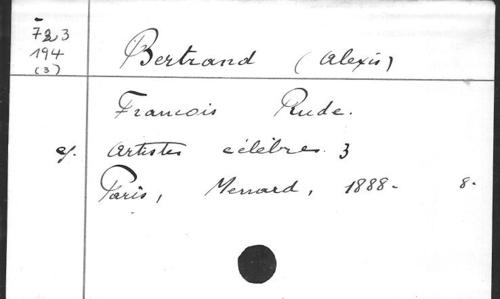 723
194
(3)
Bertrand (Alexis)
Francois Rude.
Artistes célèbres. 3
Paris, Mersard, 1888. 8.